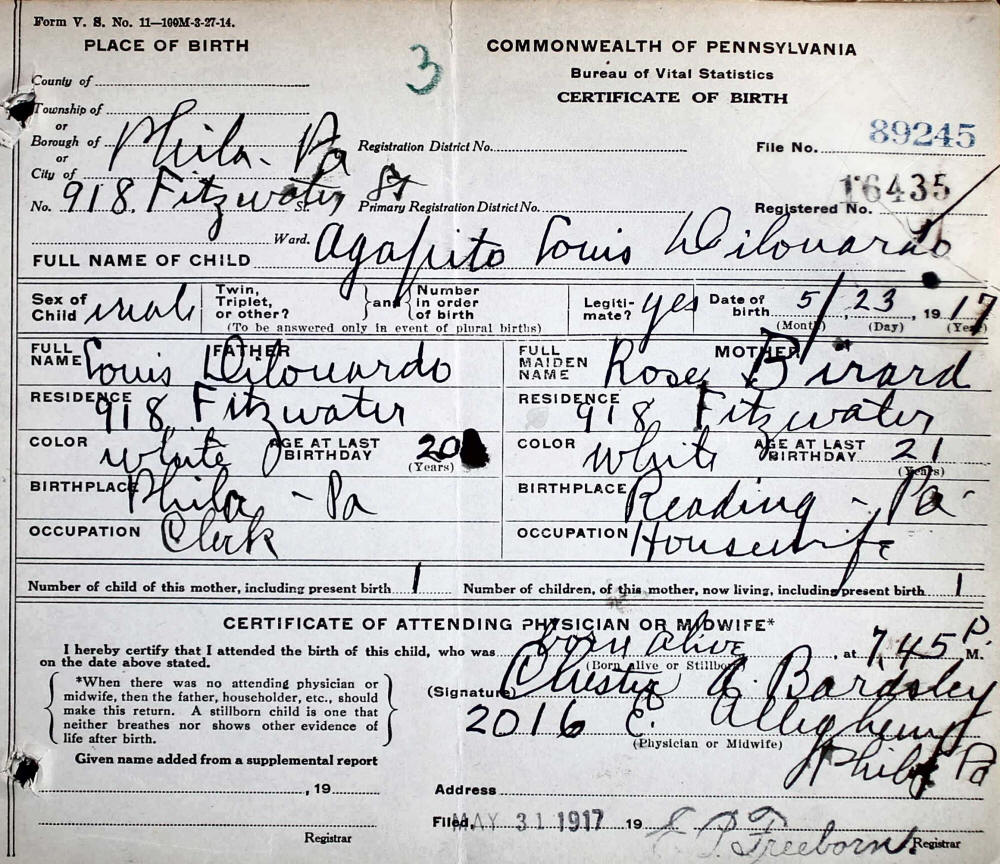 Form V. S. No. 11—100M-3-27-14.
PLACE OF BIRTH
3
COMMONWEALTH OF PENNSYLVANIA
Bureau of Vital Statistics
CERTIFICATE OF BIRTH
County of
Township of
or
Borough of
or
City of Phila. Pa
Registration District No.
File No. 89245
No. 918. Fitzwater St St.
Primary Registration District No.
Registered No. 16435
Ward.
FULL NAME OF CHILD Agapito Louis Dilouardo
Sex of Child male
Twin, Triplet, or other? } and { Number in order of birth
(To be answered only in event of plural births)
Legiti- mate? yes
Date of birth 5/ 23, 1917
(Month) (Day) (Year)
FATHER
FULL NAME Louis Dilouardo
MOTHER
FULL MAIDEN NAME Rose Birard
RESIDENCE 918 Fitzwater
RESIDENCE 918 Fitzwater
COLOR white AGE AT LAST BIRTHDAY 20 (Years)
COLOR white AGE AT LAST BIRTHDAY 21 (Years)
BIRTHPLACE Phila - Pa
BIRTHPLACE Reading - Pa-
OCCUPATION Clerk
OCCUPATION Housewife
Number of child of this mother, including present birth 1
Number of children, of this mother, now living, including present birth 1
CERTIFICATE OF ATTENDING PHYSICIAN OR MIDWIFE*
I hereby certify that I attended the birth of this child, who was born alive, at 7.45 P. M.
on the date above stated.
(Born alive or Stillborn)
*When there was no attending physician or
midwife, then the father, householder, etc., should
make this return. A stillborn child is one that
neither breathes nor shows other evidence of
life after birth.
(Signature) Chester A. Bardsley
2016 E. Allegheny
(Physician or Midwife)
Phila Pa
Given name added from a supplemental report
, 19
Address
Filed, MAY 31 1917 19
Registrar
Freeborn. Registrar